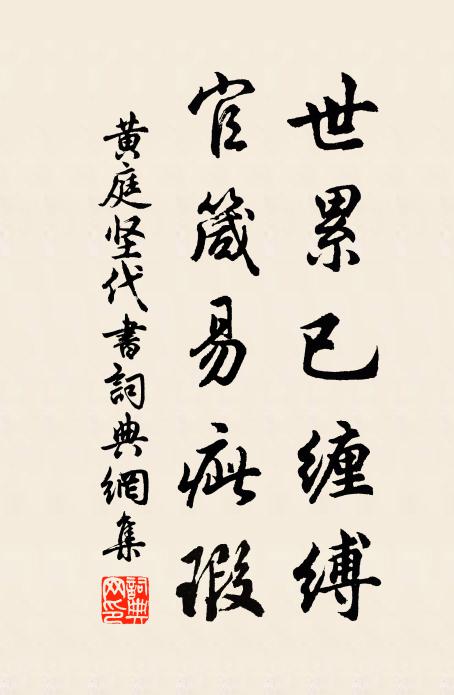 世累已缠缚
官箴易疵瑕
黄庭坚代書詞典網集
詞典
网印